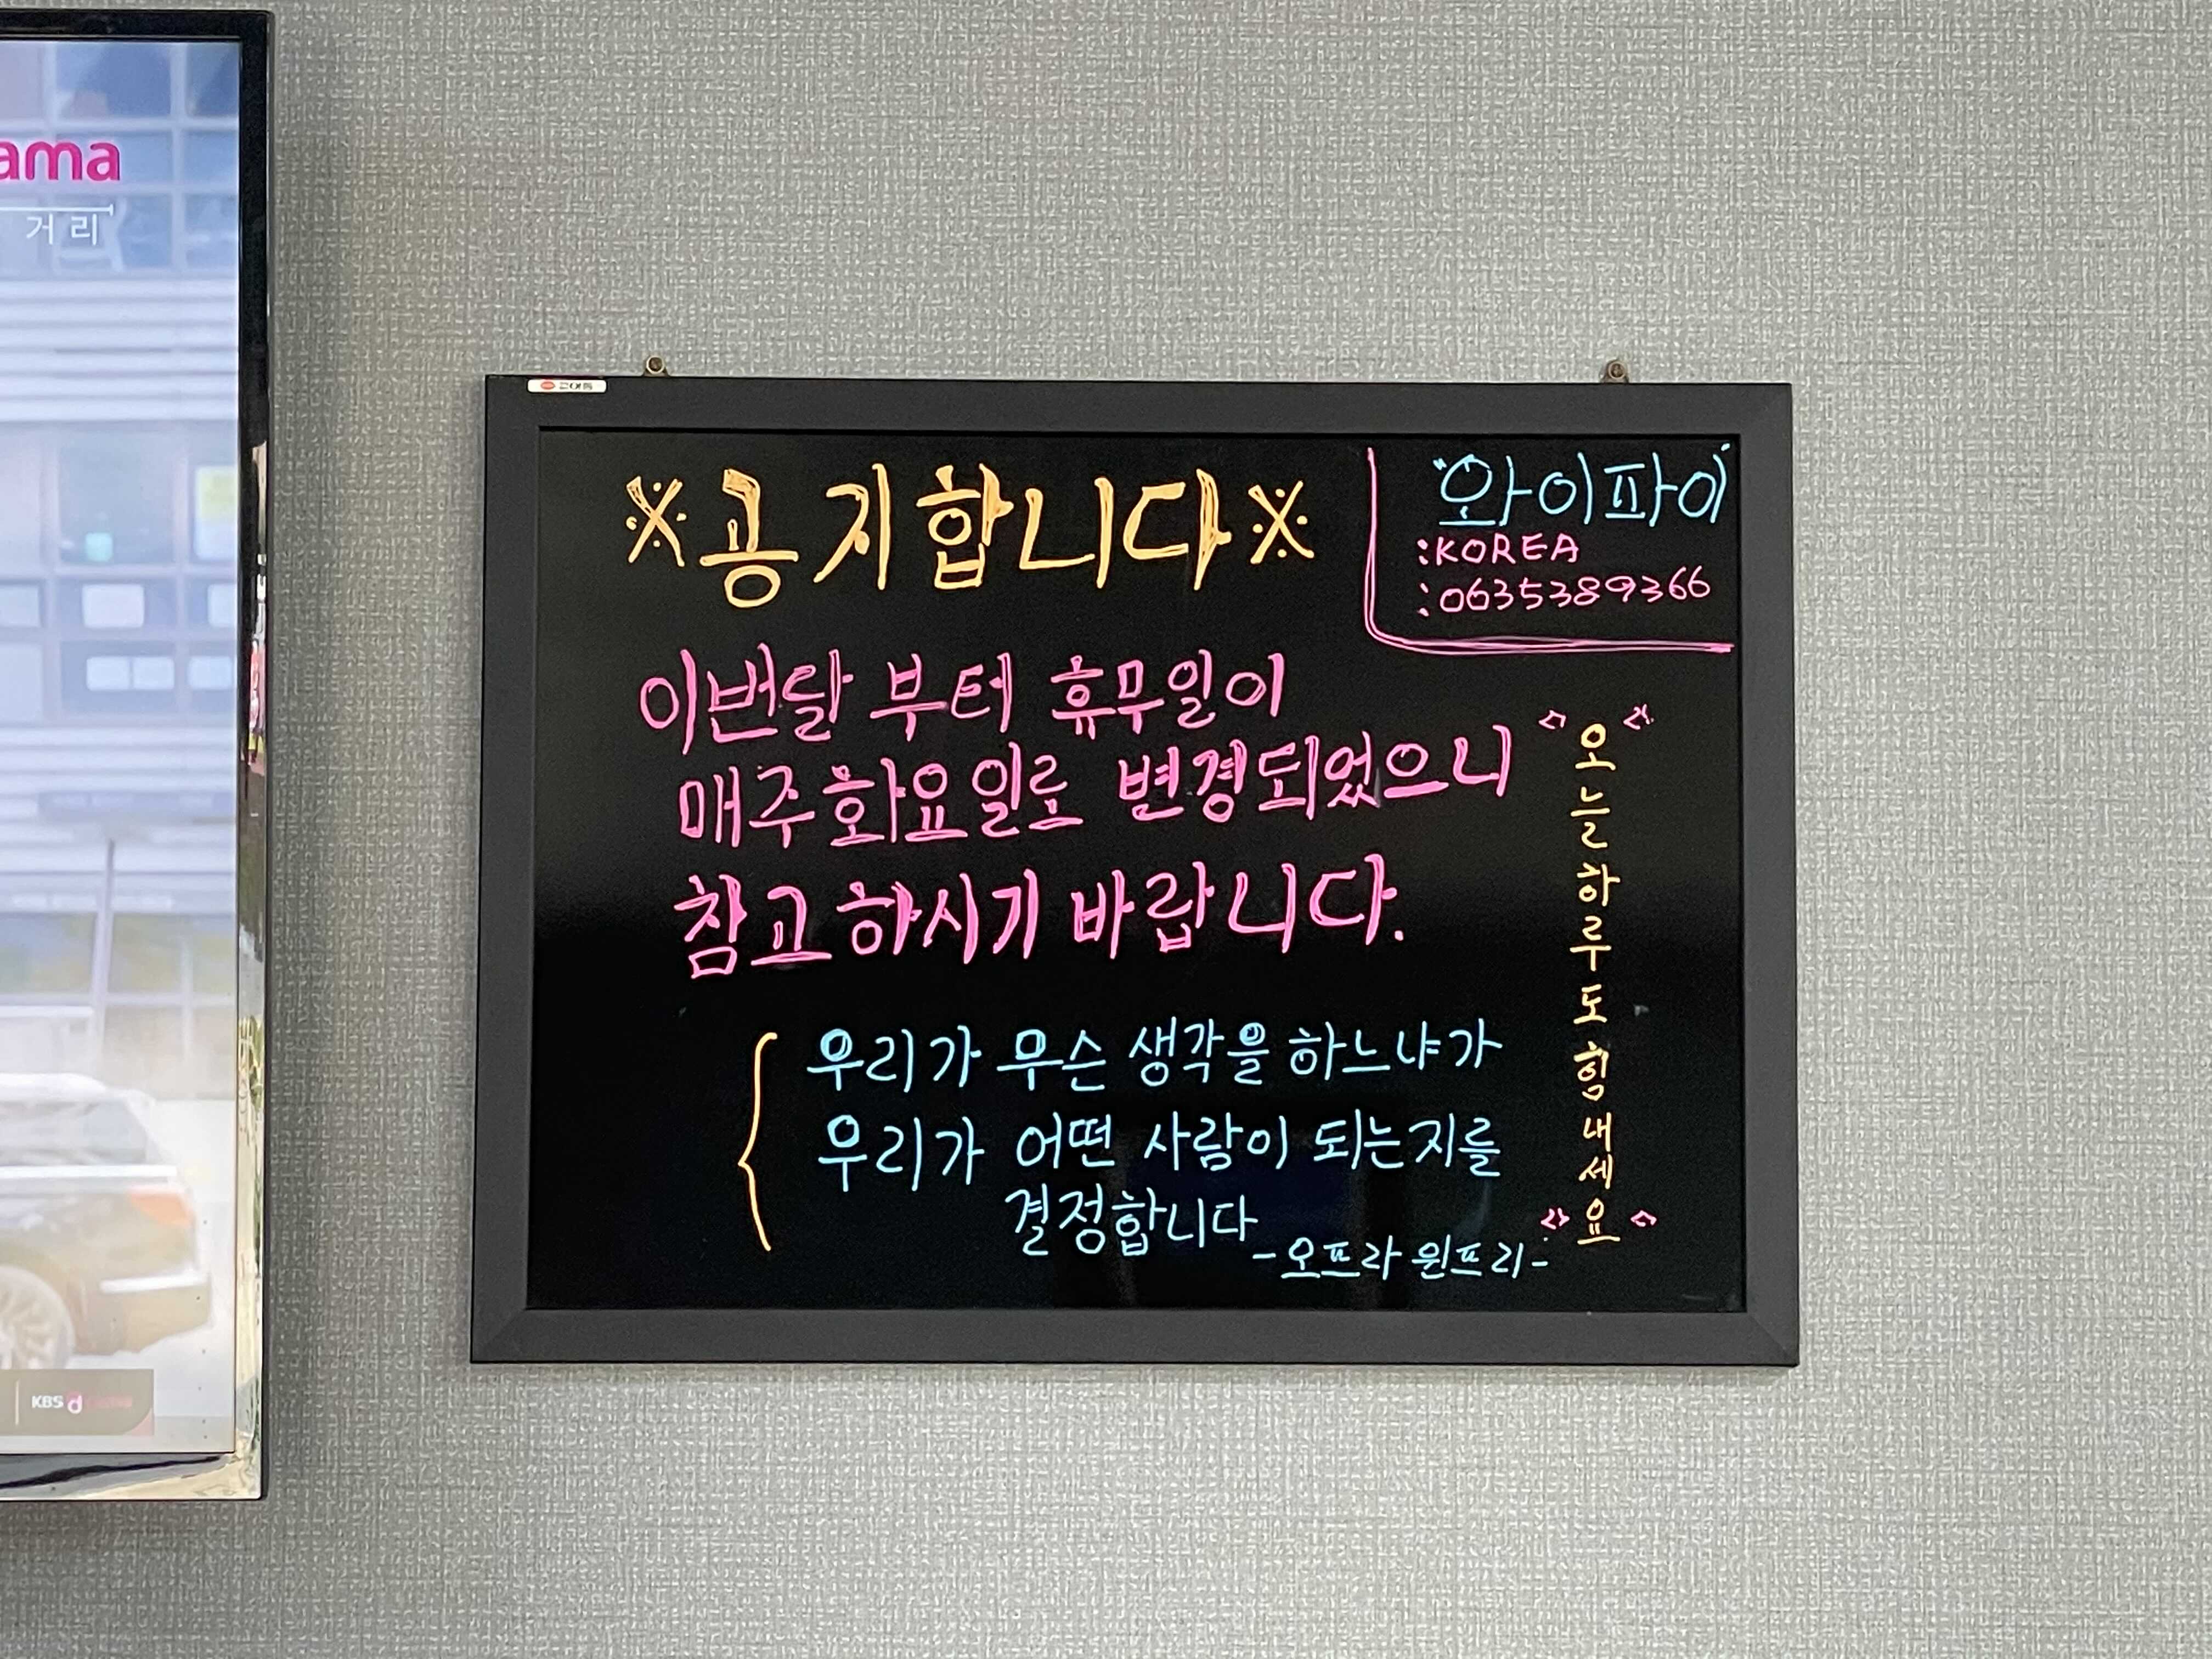 ama
거리
KBS d
※공지합니다※
와이파이
:KOREA
:0635389366
이번달 부터 휴무일이
매주 화요일로 변경되었으니
참고하시기 바랍니다.
우리가 무슨 생각을 하느냐가
우리가 어떤 사람이 되는지를
결정합니다
-오프라 윈프리-
오늘하루도힘내세요